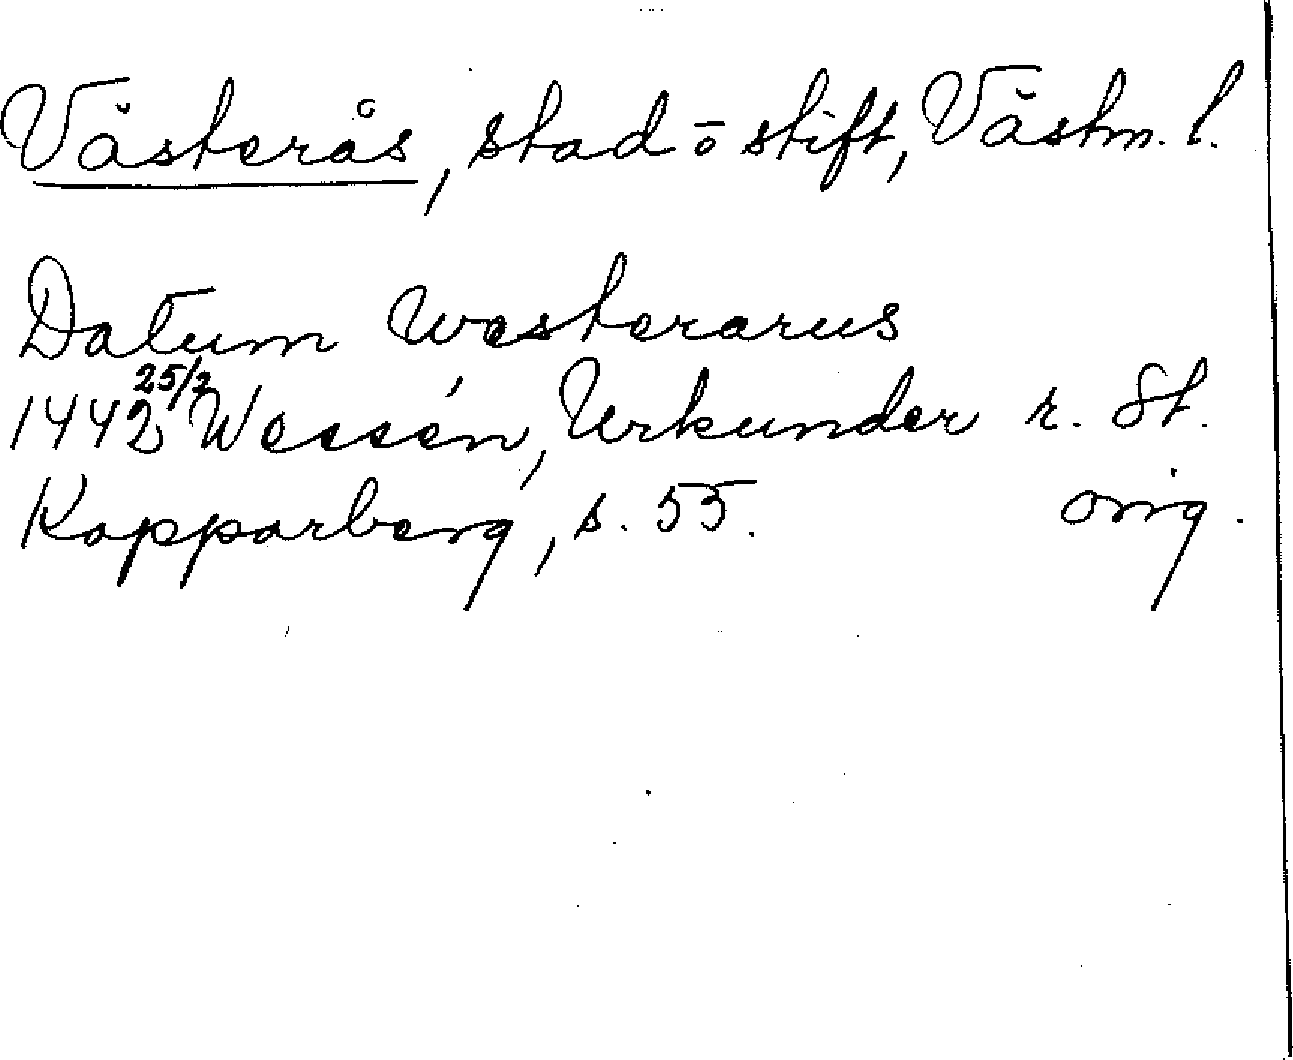 Västerås, stad o stift, Västm. l.
Datum westerarus
1442 25/2 Wessén, Urkunder r. St.
Kopparberg, s. 55. orig.